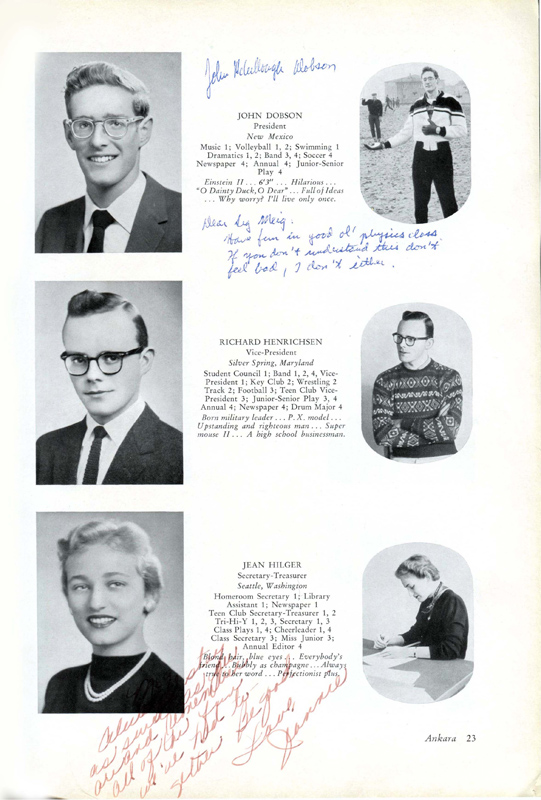 John McCullough Dobson
JOHN DOBSON
President
New Mexico
Music 1; Volleyball 1, 2; Swimming 1
Dramatics 1, 2; Band 3, 4; Soccer 4
Newspaper 4; Annual 4; Junior-Senior
Play 4
Einstein II . . . 6'3" . . . Hilarious . . .
"O Dainty Duck, O Dear" . . . Full of Ideas
. . . Why worry? I'll live only once.
Dear
Have fun in good ol' physics class
If you don't understand this don't
feel bad, I don't either.
RICHARD HENRICHSEN
Vice-President
Silver Spring, Maryland
Student Council 1; Band 1, 2, 4, Vice-
President 1; Key Club 2; Wrestling 2
Track 2; Football 3; Teen Club Vice-
President 3; Junior-Senior Play 3, 4
Annual 4; Newspaper 4; Drum Major 4
Born military leader . . . P. X. model . . .
Upstanding and righteous man . . . Super
mouse II . . . A high school businessman.
JEAN HILGER
Secretary-Treasurer
Seattle, Washington
Homeroom Secretary 1; Library
Assistant 1; Newspaper 1
Teen Club Secretary-Treasurer 1, 2
Tri-Hi-Y 1, 2, 3, Secretary 1, 3
Class Plays 1, 4; Cheerleader 1, 4
Class Secretary 3; Miss Junior 3;
Annual Editor 4
Blond hair, blue eyes . . . Everybody's
friend . . . Bubbly as champagne . . . Always
true to her word . . . Perfectionist plus.
as sweet
and remember
all of the fun
we've had
Be good
Love,
Jeannie
Ankara 23